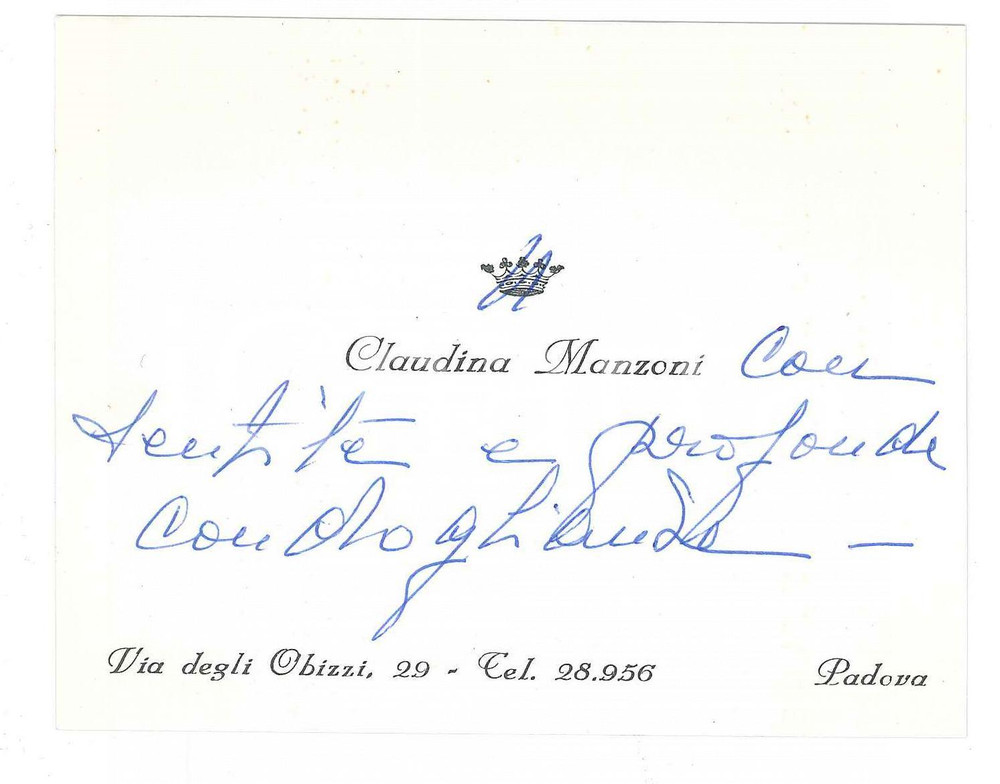 Claudina Manzoni Con
sentite e profonde
condoglianze —
Via degli Obizzi, 29 - Tel. 28.956 Padova